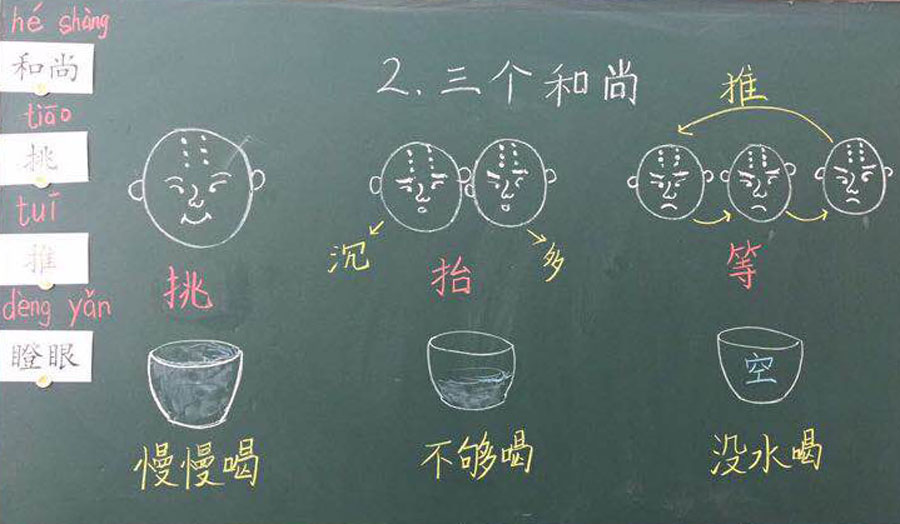 hé shàng
和尚
tiāo
挑
tuī
推
dèng yǎn
瞪眼
2.三个和尚
推
沉
多
挑
抬
等
空
慢慢喝
不够喝
没水喝